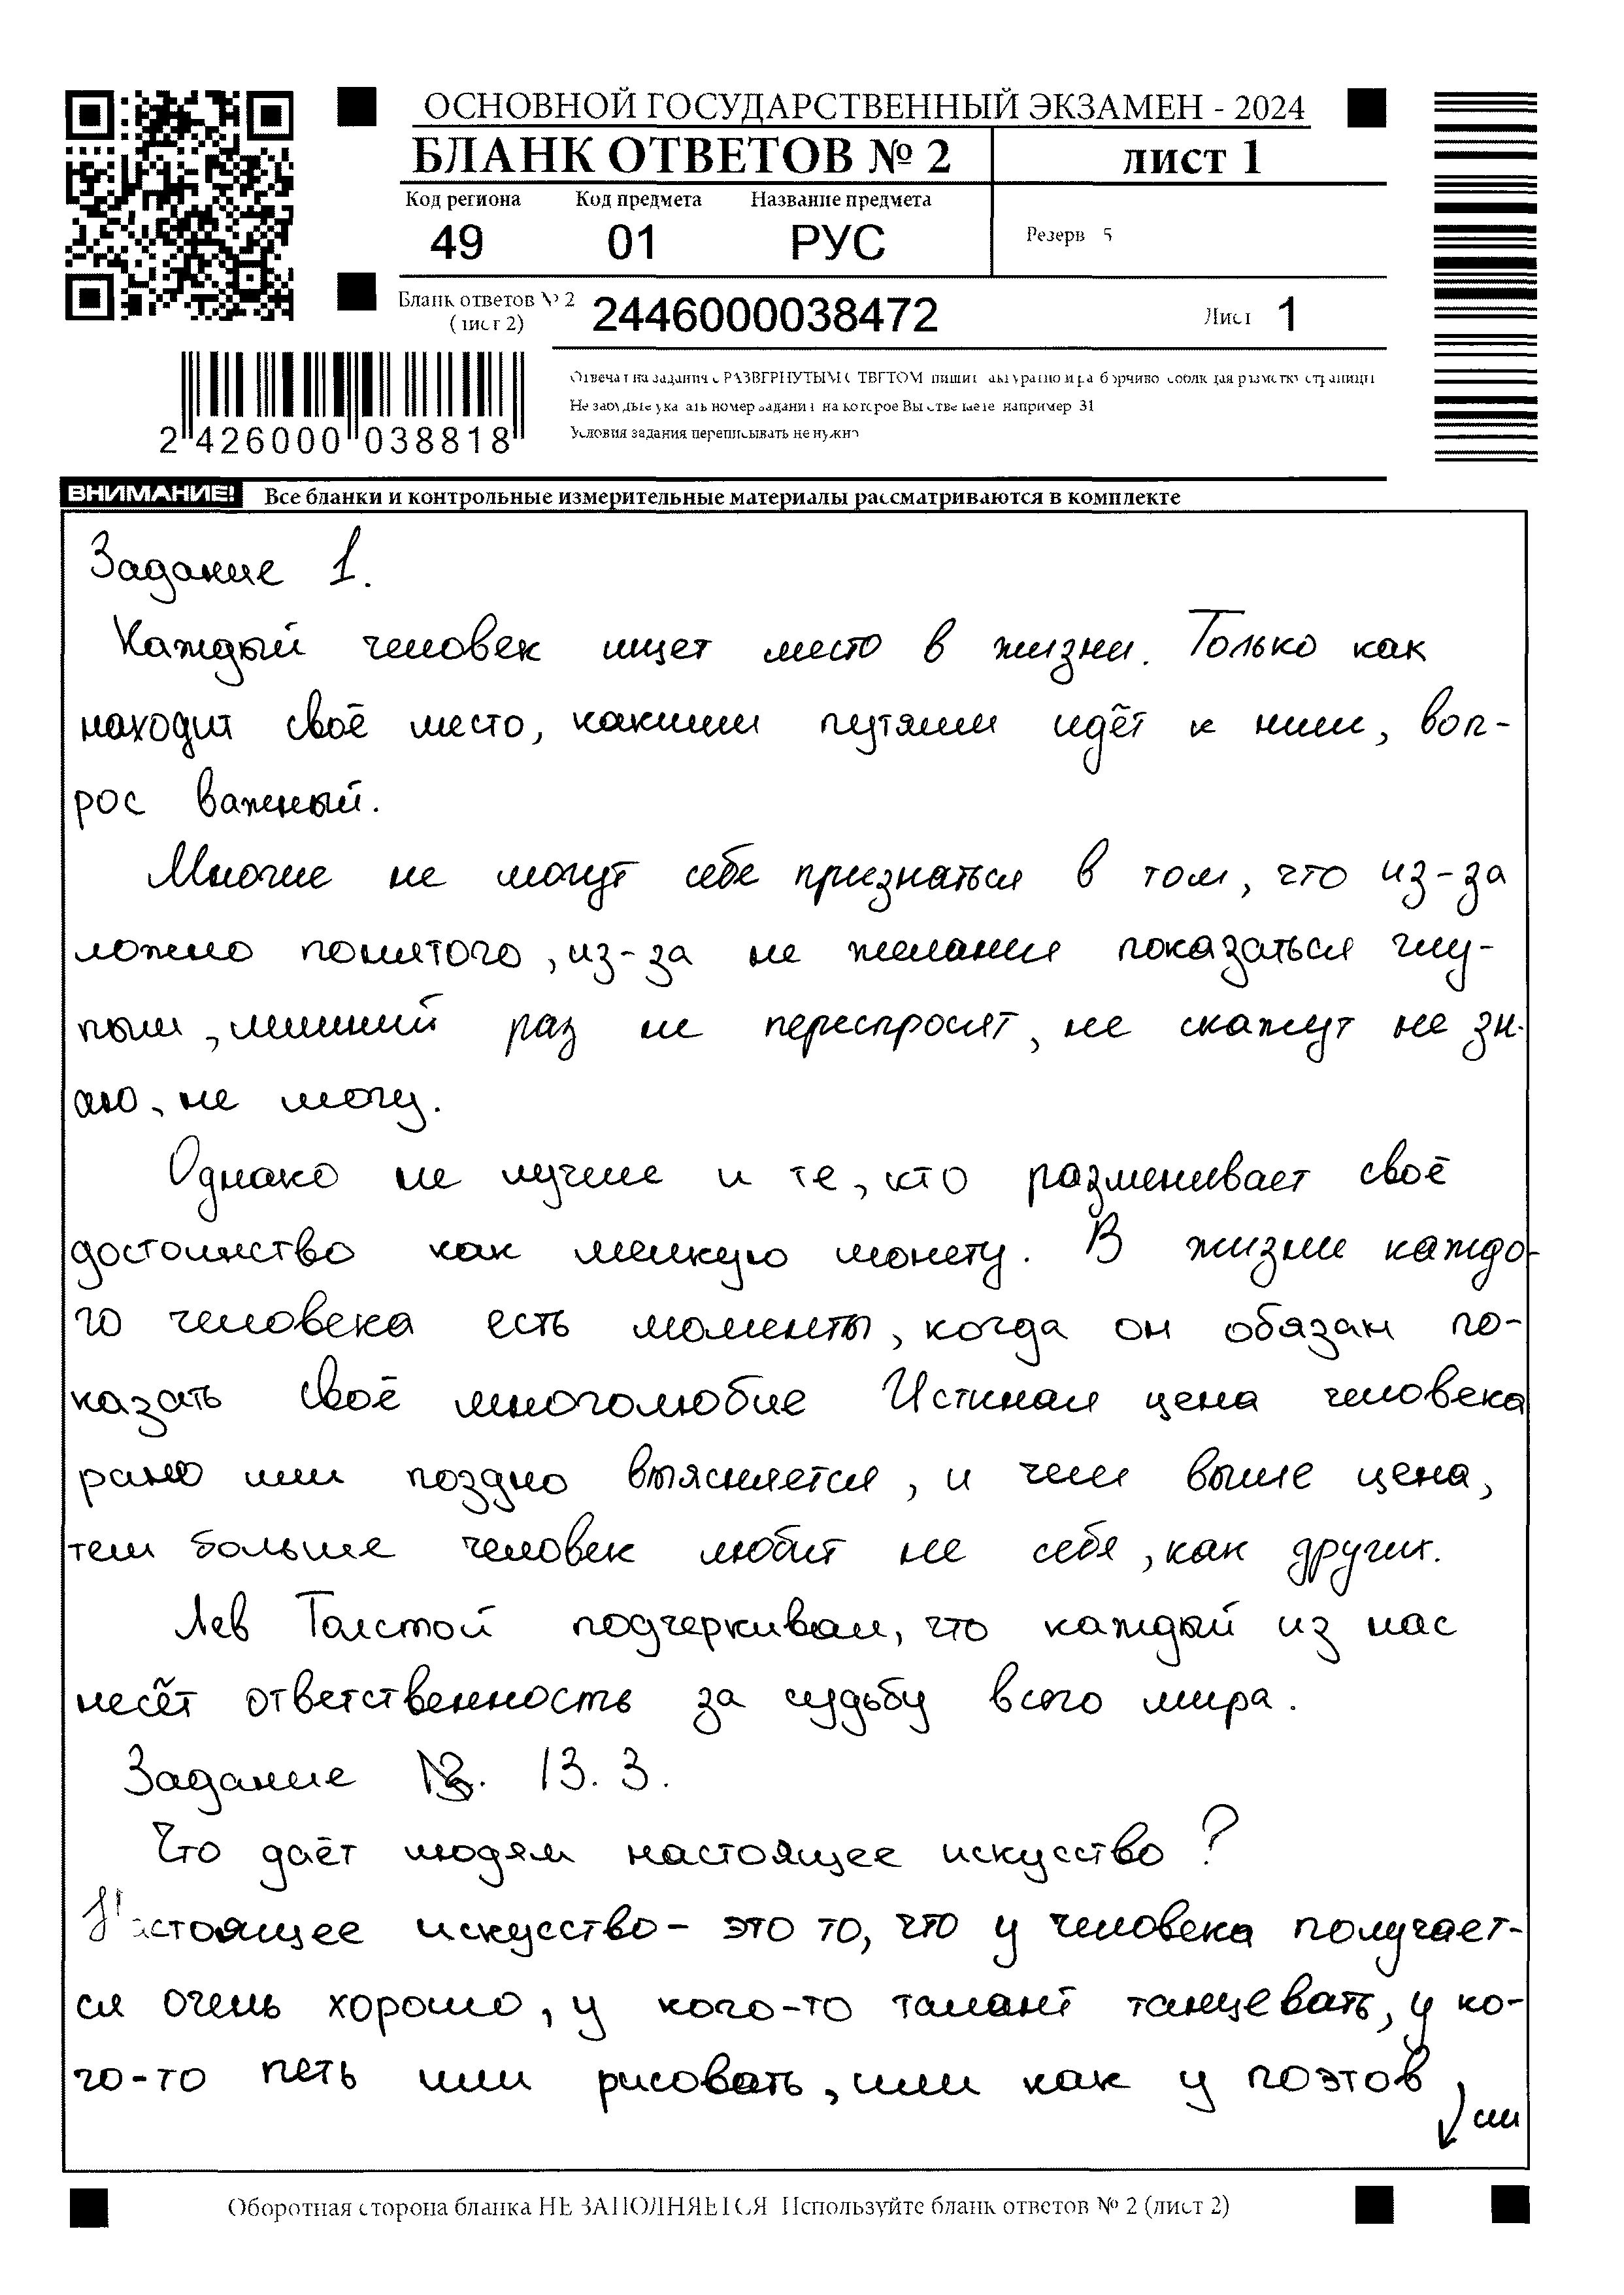 ОСНОВНОЙ ГОСУДАРСТВЕННЫЙ ЭКЗАМЕН - 2024
БЛАНК ОТВЕТОВ № 2 лист 1
Код региона Код предмета Название предмета
49 01 РУС
Резерв 5
Бланк ответов № 2
(лист 2)
2446000038472
Лист 1
2 426000 038818
Отвечая на задания с РАЗВЕРНУТЫМ ОТВЕТОМ пишите аккуратно и разборчиво соблюдая разметку страницы
Не забудьте указать номер задания на которое Вы отвечаете например 31
Условия задания переписывать не нужно
ВНИМАНИЕ! Все бланки и контрольные измерительные материалы рассматриваются в комплекте
Задание 1.
Каждый человек ищет место в жизни. Только как
находит своё место, какими путями идёт к ним, воп-
рос важный.
Многие не могут себе признаться в том, что из-за
ложно понятого, из-за не желания показаться глу-
пым, лишний раз не переспросят, не скажут не зн-
аю, не могу.
Однако не лучше и те, кто разменивает своё
достоинство как мелкую монету. В жизни каждо-
го человека есть моменты, когда он обязан по-
казать своё многолюбие Истиная цена человека
рано или поздно выясняется, и чем выше цена,
тем больше человек любит не себя, как других.
Лев Толстой подчеркивал, что каждый из нас
несёт ответственность за судьбу всего мира.
Задание 13.3.
Что даёт людям настоящее искусство?
Настоящее искусство - это то, что у человека получает-
ся очень хорошо, у кого-то талант танцевать, у ко-
го-то петь или рисовать, или как у поэтов,
↓ см
Оборотная сторона бланка НЕ ЗАПОЛНЯЕТСЯ Используйте бланк ответов № 2 (лист 2)